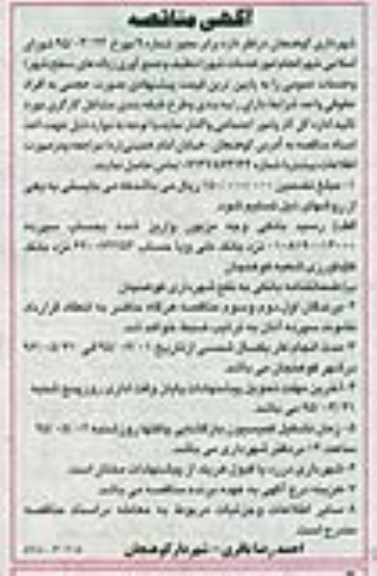 آگهی مناقصه
شهرداری کوهنجان در نظر دارد برابر مجوز شماره ۹ مورخ ۹۵/۰۳/۲۲ شورای
اسلامی شهر انجام امور خدمات شهر (تنظیف و جمع آوری زباله های سطح شهر)
وخدمات عمومی را به پایین ترین قیمت پیشنهادی بصورت حجمی به افراد
حقوقی واجد شرایط دارای رتبه بندی وطرح طبقه بندی مشاغل کارگری مورد
تائید اداره کل کار وامور اجتماعی واگذار نماید با توجه به موارد ذیل جهت اخذ
اسناد مناقصه به آدرس کوهنجان خیابان امام خمینی (ره) مراجعه ودرصورت
اطلاعات بیشتر با شماره تماس حاصل نمایند.
۱- مبلغ تضمین ریال می باشد که می بایستی به یکی
از روشهای ذیل تسلیم شود.
الف) رسید بانکی وجه مزبور واریز شده بحساب سپرده
نزد بانک ملی ویا حساب نزد بانک
کشاورزی شعبه کوهنجان
ب) ضمانتنامه بانکی به نفع شهرداری کوهنجان
۲- برندگان اول، دوم وسوم مناقصه هرگاه حاضر به انعقاد قرارداد
نشوند سپرده آنان به ترتیب ضبط خواهد شد.
۳- مدت انجام کار یکسال شمسی از تاریخ لغایت
درشهر کوهنجان می باشد.
۴- آخرین مهلت تحویل پیشنهادات پایان وقت اداری روز پنج شنبه
می باشد.
۵- زمان تشکیل کمیسیون بازگشایی پاکتها روز شنبه
ساعت ۱۲ در دفتر شهرداری می باشد.
۶- شهرداری در رد یا قبول هریک از پیشنهادات مختار است.
۷- هزینه درج آگهی به عهده برنده مناقصه می باشد.
۸- سایر اطلاعات وجزئیات مربوط به معامله دراسناد مناقصه
مندرج است.
احمدرضا باقری - شهردار کوهنجان